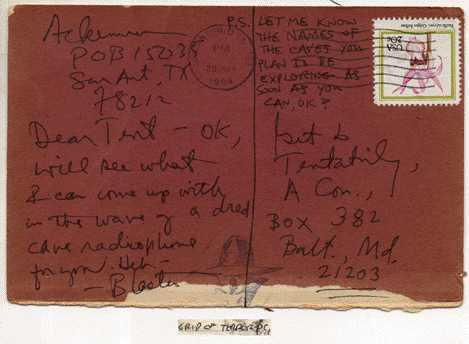 Ackerman
POB 1503
San Ant. TX
78212
Dear Tent - OK,
will see what
I can come up with
in the wave of a dred
cave radiophone
for you. Heh-
- Blaster
P.S. LET ME KNOW
THE NAMES OF
THE CAVES YOU
PLAN TO BE
EXPLORING AS
SOON AS YOU
CAN, OK?
PM
1984
USA
20c
Tentatively,
A Con.,
BOX 382
Balt., Md.
21203
GRIP OF